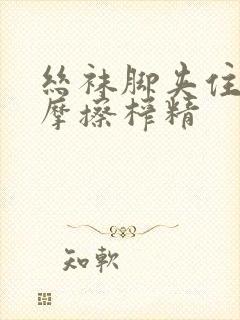 丝袜脚夹住
摩擦榨精
知軟